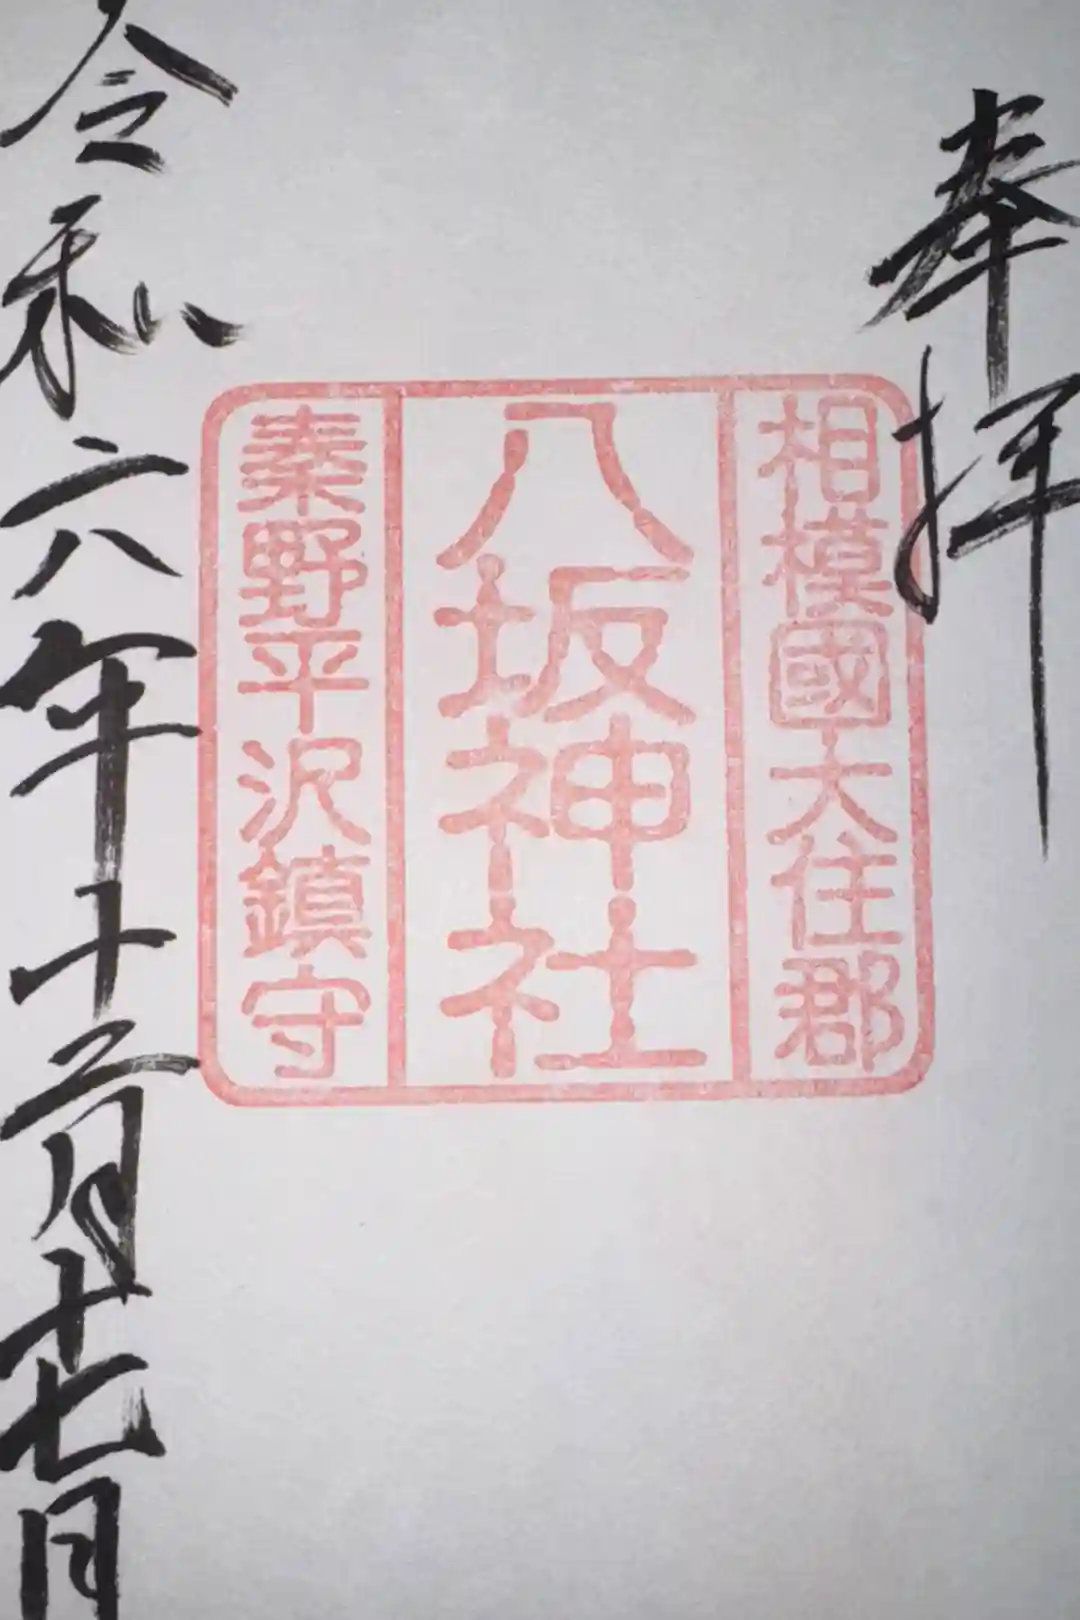 奉拝
相模國大住郡
八坂神社
秦野平沢鎮守
令和六年十二月十七日